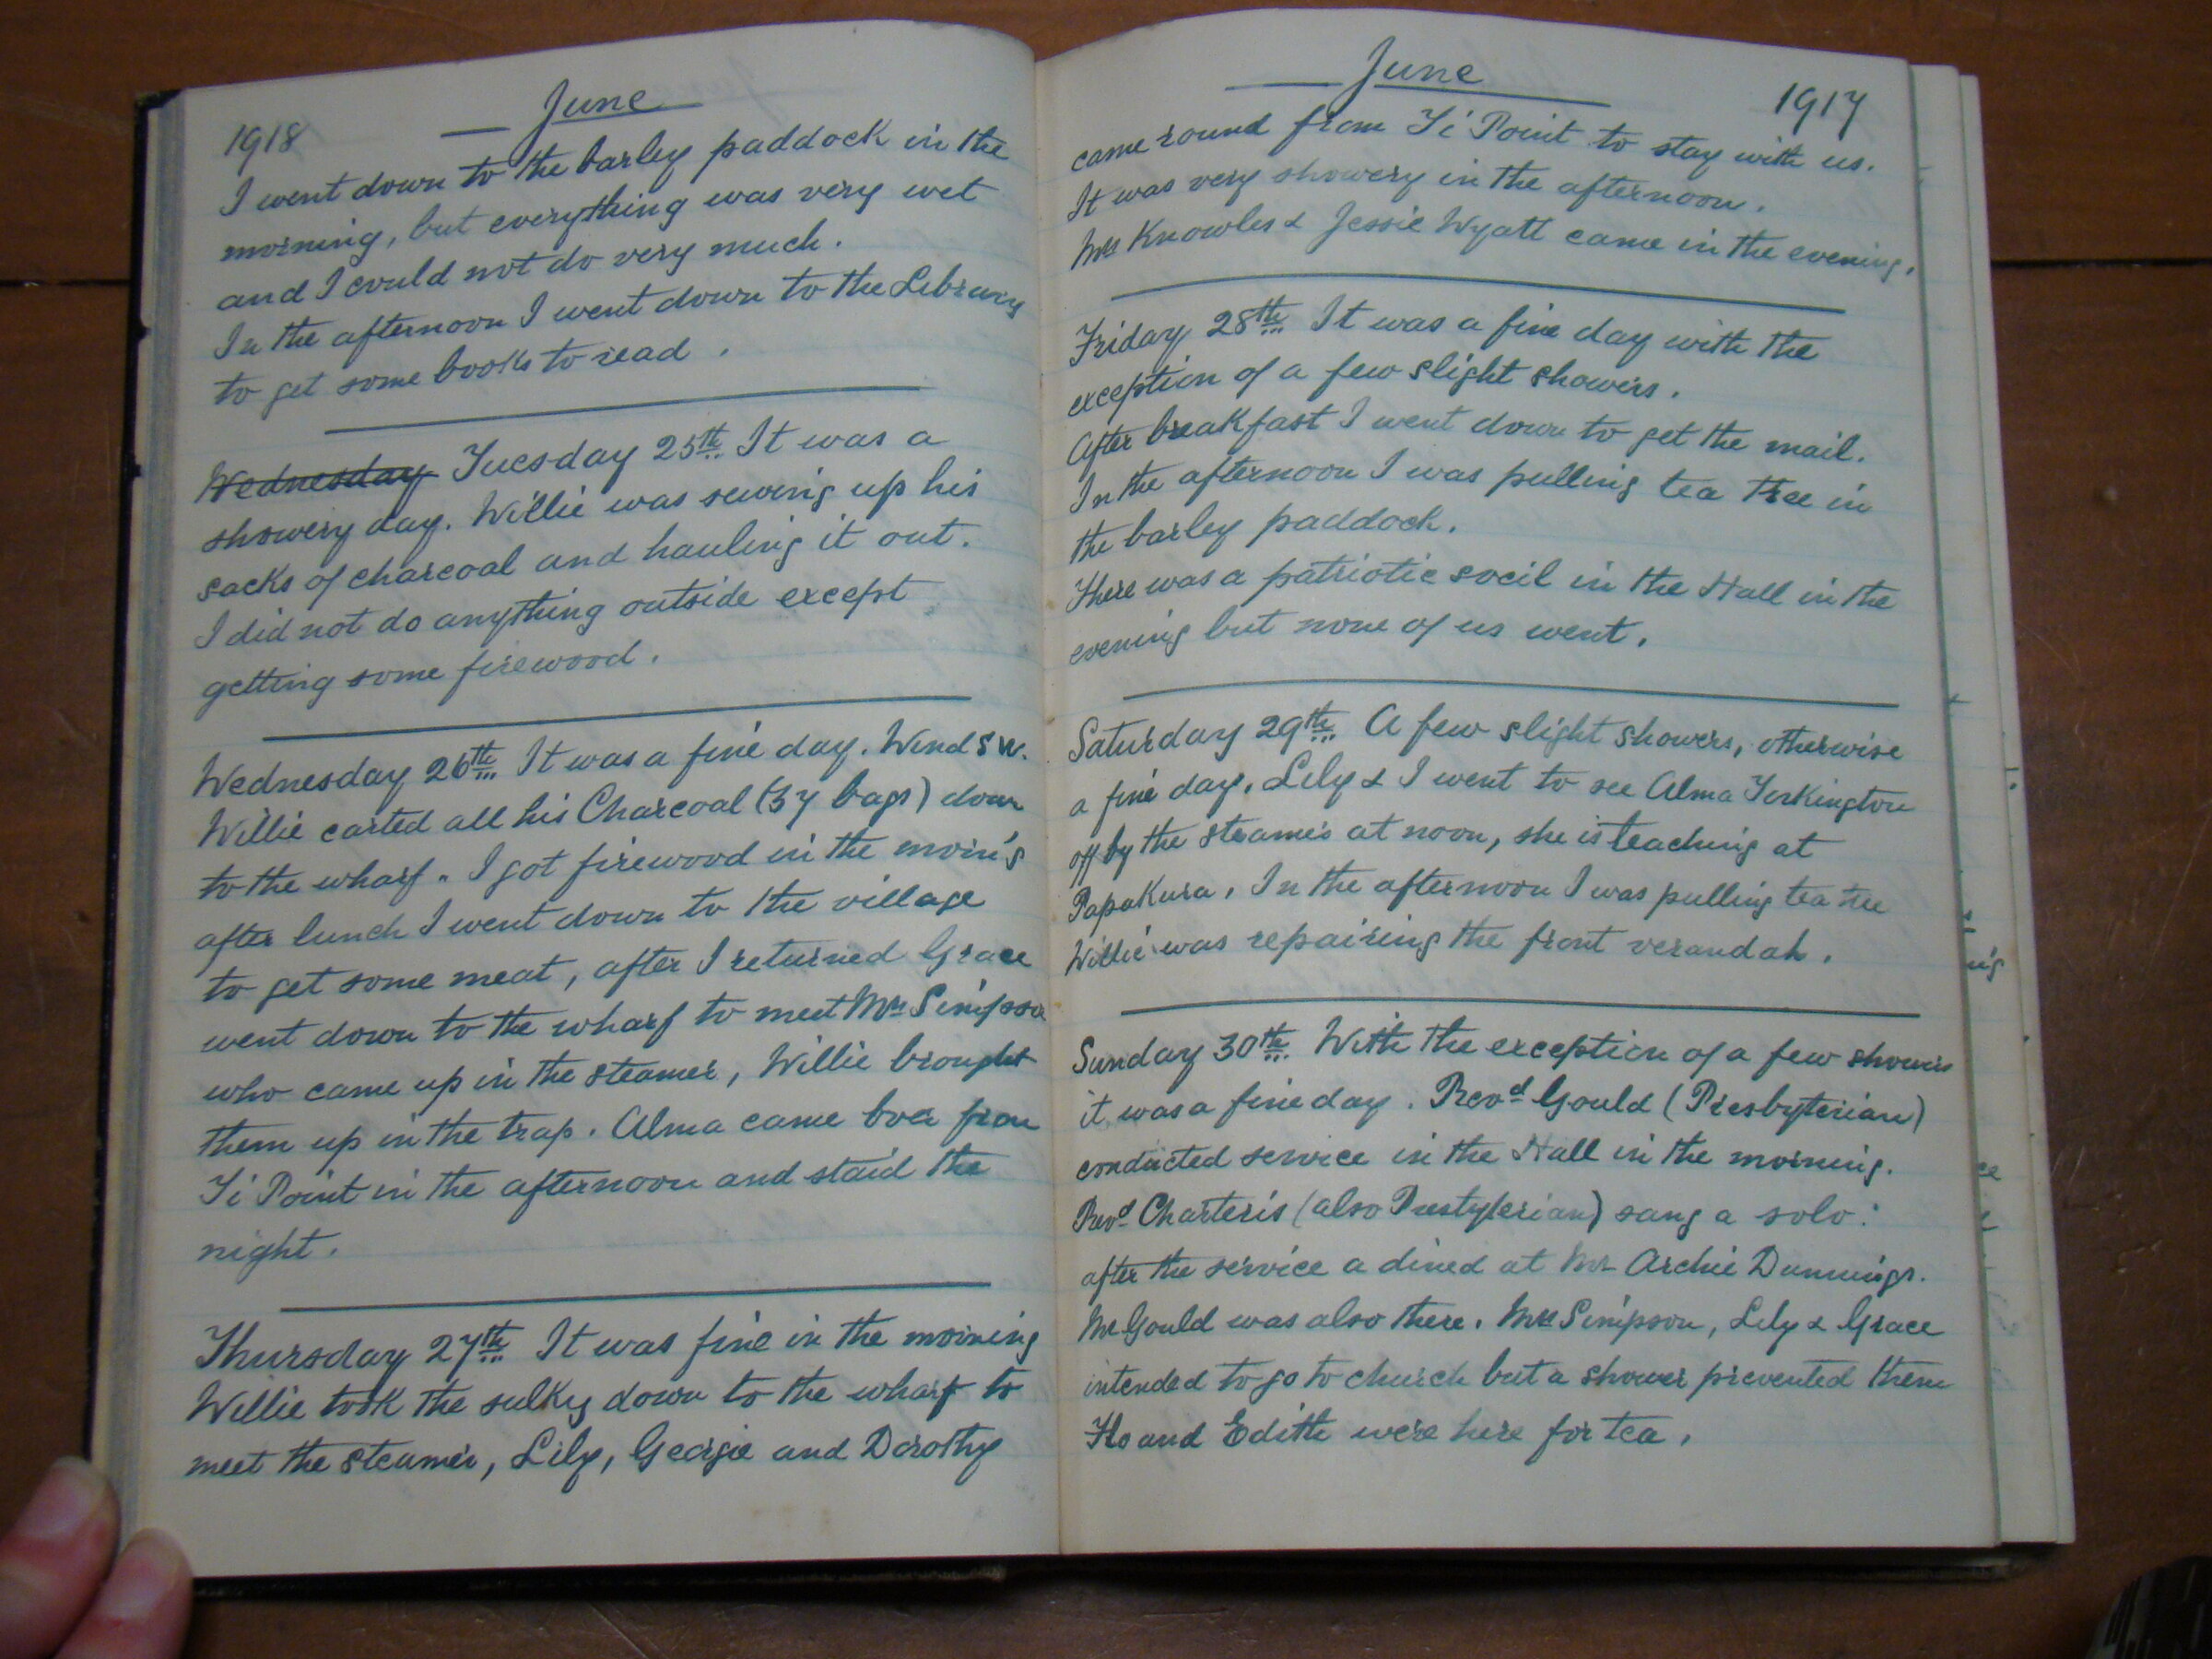 June
1918
I went down to the barley paddock in the
morning, but everything was very wet
and I could not do very much.
In the afternoon I went down to the Library
to get some books to read.
Wednesday Tuesday 25th It was a
showery day. Willie was sewing up his
sacks of charcoal and hauling it out.
I did not do anything outside except
getting some firewood.
Wednesday 26th It was a fine day. Wind SW.
Willie carted all his Charcoal (37 bags) down
to the wharf. I got firewood in the morn'g
after lunch I went down to the village
to get some meat, after I returned Grace
went down to the wharf to meet Mrs Simpson
who came up in the steamer, Willie brought
them up in the trap. Alma came from
Ti Point in the afternoon and staid the
night.
Thursday 27th It was fine in the morning
Willie took the sulky down to the wharf to
meet the steamer, Lily, Georgie and Dorothy
June
1917
came round from Ti Point to stay with us.
It was very showery in the afternoon.
Mrs Knowles & Jessie Wyatt came in the evening.
Friday 28th It was a fine day with the
exception of a few slight showers.
After breakfast I went down to get the mail.
In the afternoon I was pulling tea tree in
the barley paddock.
There was a patriotic socil in the Hall in the
evening but none of us went.
Saturday 29th A few slight showers, otherwise
a fine day. Lily & I went to see Alma Torkington
off by the steamer at noon, she is teaching at
Papakura. In the afternoon I was pulling tea tree
Willie was repairing the front verandah.
Sunday 30th With the exception of a few showers
it was a fine day. Revd Gould (Presbyterian)
conducted service in the Hall in the morning.
Revd Charteris (also Prestyterian) sang a solo:
after the service a dined at Mr Archie Dunnings.
Mr Gould was also there. Mrs Simpson, Lily & Grace
intended to go to church but a shower prevented them
Flo and Edith were here for tea.